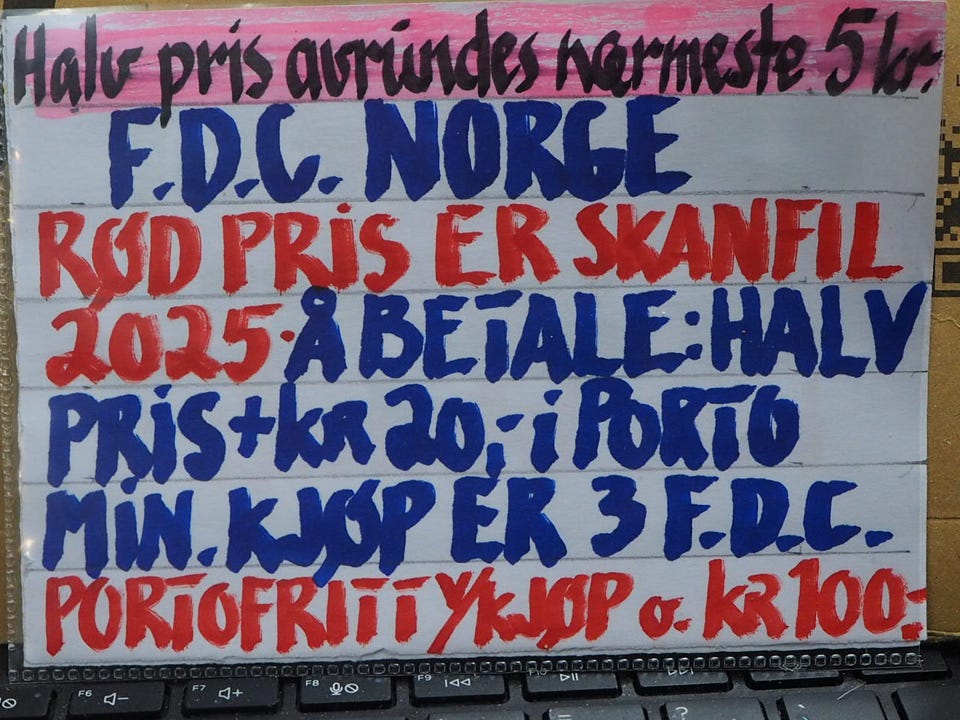 Halv pris avrundes nærmeste 5 kr.
F.D.C. NORGE
RØD PRiS ER SKANFIL
2025. Å BETALE: HALV
PRiS + kR 20,- i PORTO
MiN. KJØP ER 3 F.D.C.
PORTOFRITT V/KJØP o. kR 100,-
F6
F7
F8
F9
F10